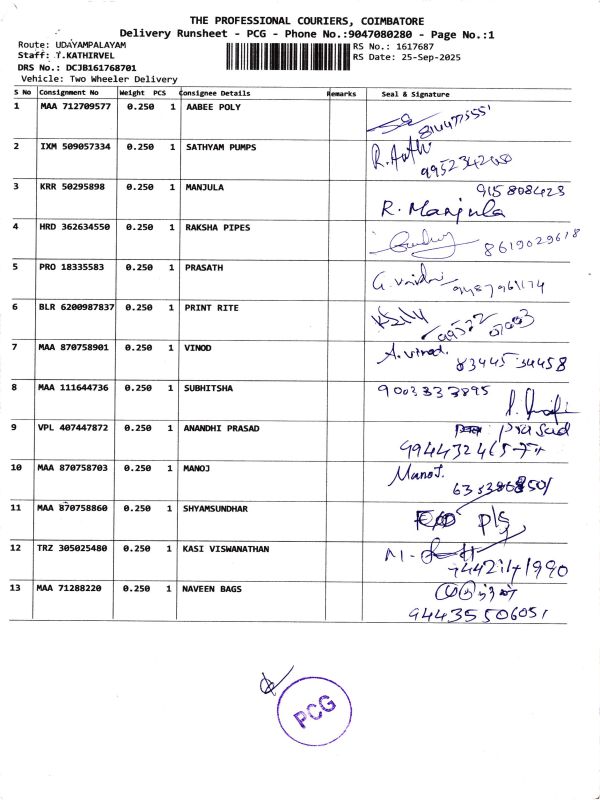 THE PROFESSIONAL COURIERS, COIMBATORE
Delivery Runsheet - PCG - Phone No.:9047080280 - Page No.:1
Route: UDAYAMPALAYAM
Staff: T.KATHIRVEL
DRS No.: DCJB161768701
Vehicle: Two Wheeler Delivery
RS No.: 1617687
RS Date: 25-Sep-2025
S No Consignment No Weight PCS Consignee Details Remarks Seal & Signature
1 MAA 712709577 0.250 1 AABEE POLY
2 IXM 509057334 0.250 1 SATHYAM PUMPS
3 KRR 50295898 0.250 1 MANJULA 915808423
R. Manjula
4 HRD 362634550 0.250 1 RAKSHA PIPES 8619029618
5 PRO 18335583 0.250 1 PRASATH 9487961174
6 BLR 6200987837 0.250 1 PRINT RITE
7 MAA 870758901 0.250 1 VINOD A.vinod. 83445 34458
8 MAA 111644736 0.250 1 SUBHITSHA 9003333895
9 VPL 407447872 0.250 1 ANANDHI PRASAD Prasad
10 MAA 870758703 0.250 1 MANOJ Manoj.
11 MAA 870758860 0.250 1 SHYAMSUNDHAR
12 TRZ 305025480 0.250 1 KASI VISWANATHAN
13 MAA 71288220 0.250 1 NAVEEN BAGS
94435506051
PCG